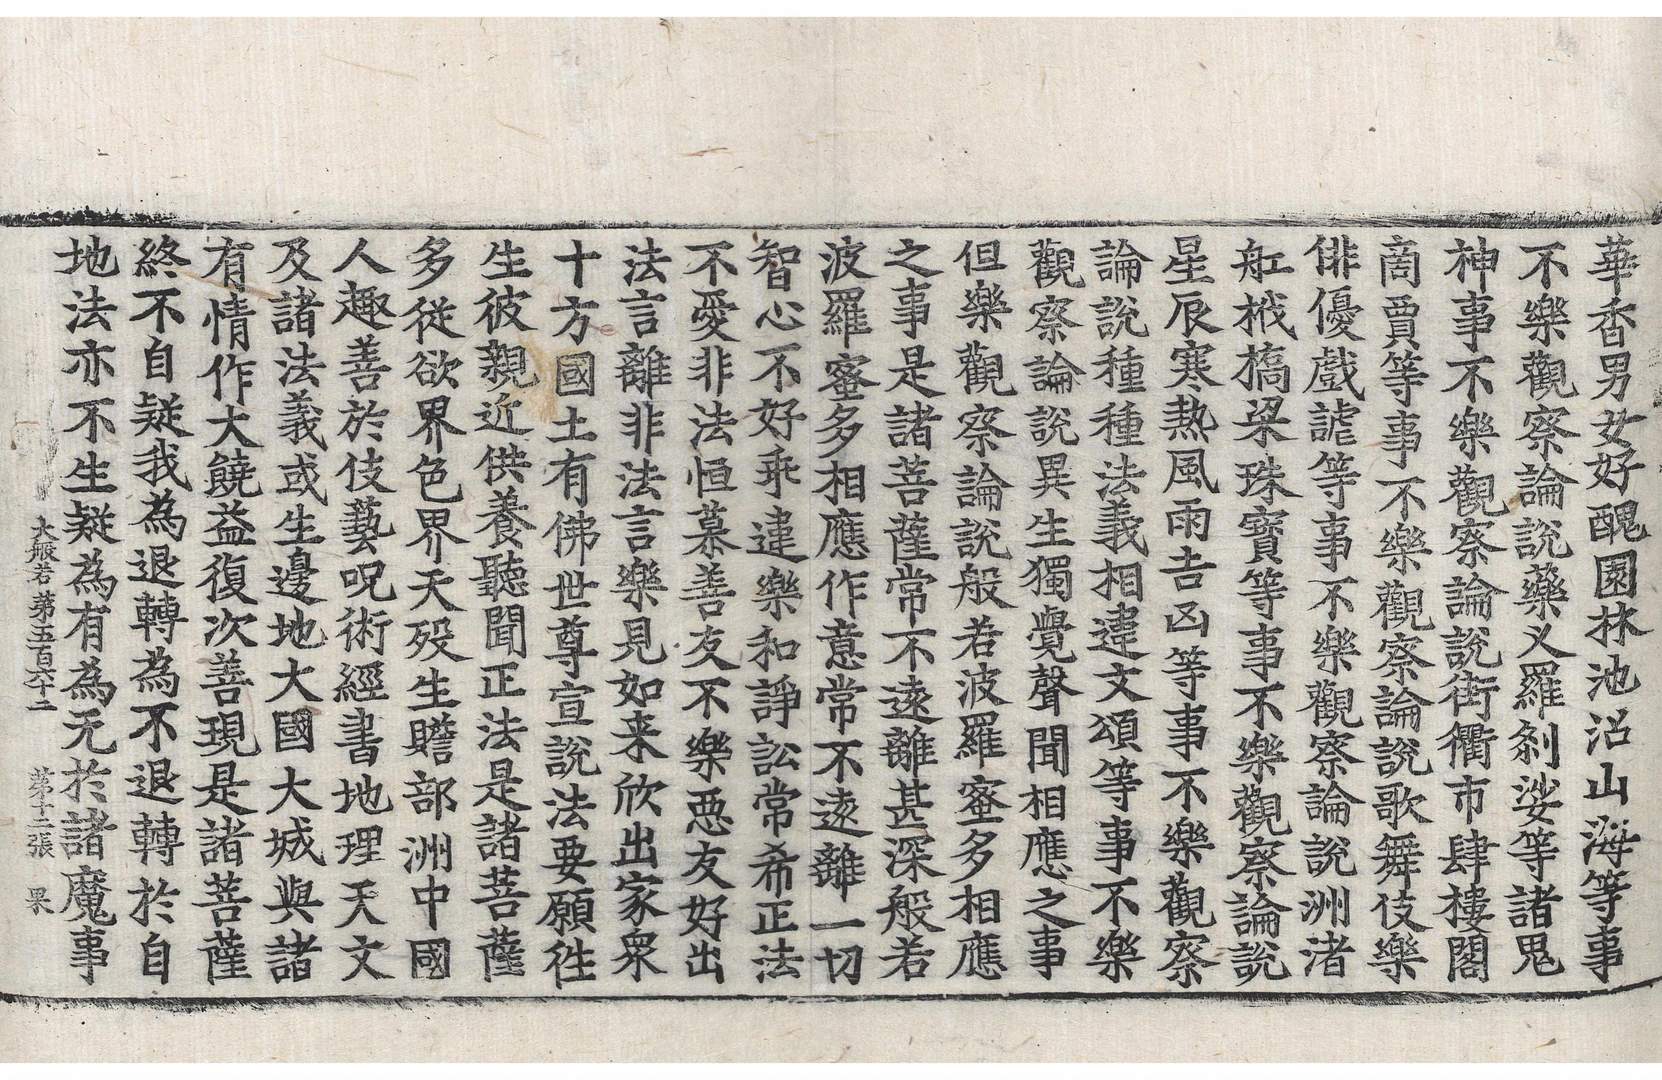 華香男女好醜園林池沼山海等事
不樂觀察論說藥叉羅剎娑等諸鬼
神事不樂觀察論說街衢市肆樓閣
商賈等事不樂觀察論說歌舞伎樂
俳優戲謔等事不樂觀察論說洲渚
舡栰橋梁珠寶等事不樂觀察論說
星辰寒熱風雨吉凶等事不樂觀察
論說種種法義相違文頌等事不樂
觀察論說異生獨覺聲聞相應之事
但樂觀察論說般若波羅蜜多相應
之事是諸菩薩常不遠離甚深般若
波羅蜜多相應作意常不遠離一切
智心不好乖違樂和諍訟常希正法
不愛非法恒慕善友不樂惡友好出
法言離非法言樂見如来欣出家衆
十方國土有佛世尊宣說法要願往
生彼親近供養聽聞正法是諸菩薩
多從欲界色界天歿生贍部洲中國
人趣善於伎藝呪術經書地理天文
及諸法義或生邊地大國大城與諸
有情作大饒益復次善現是諸菩薩
終不自疑我為退轉為不退轉於自
地法亦不生疑為有為无於諸魔事
大般若第五百六十二 第十二張 果